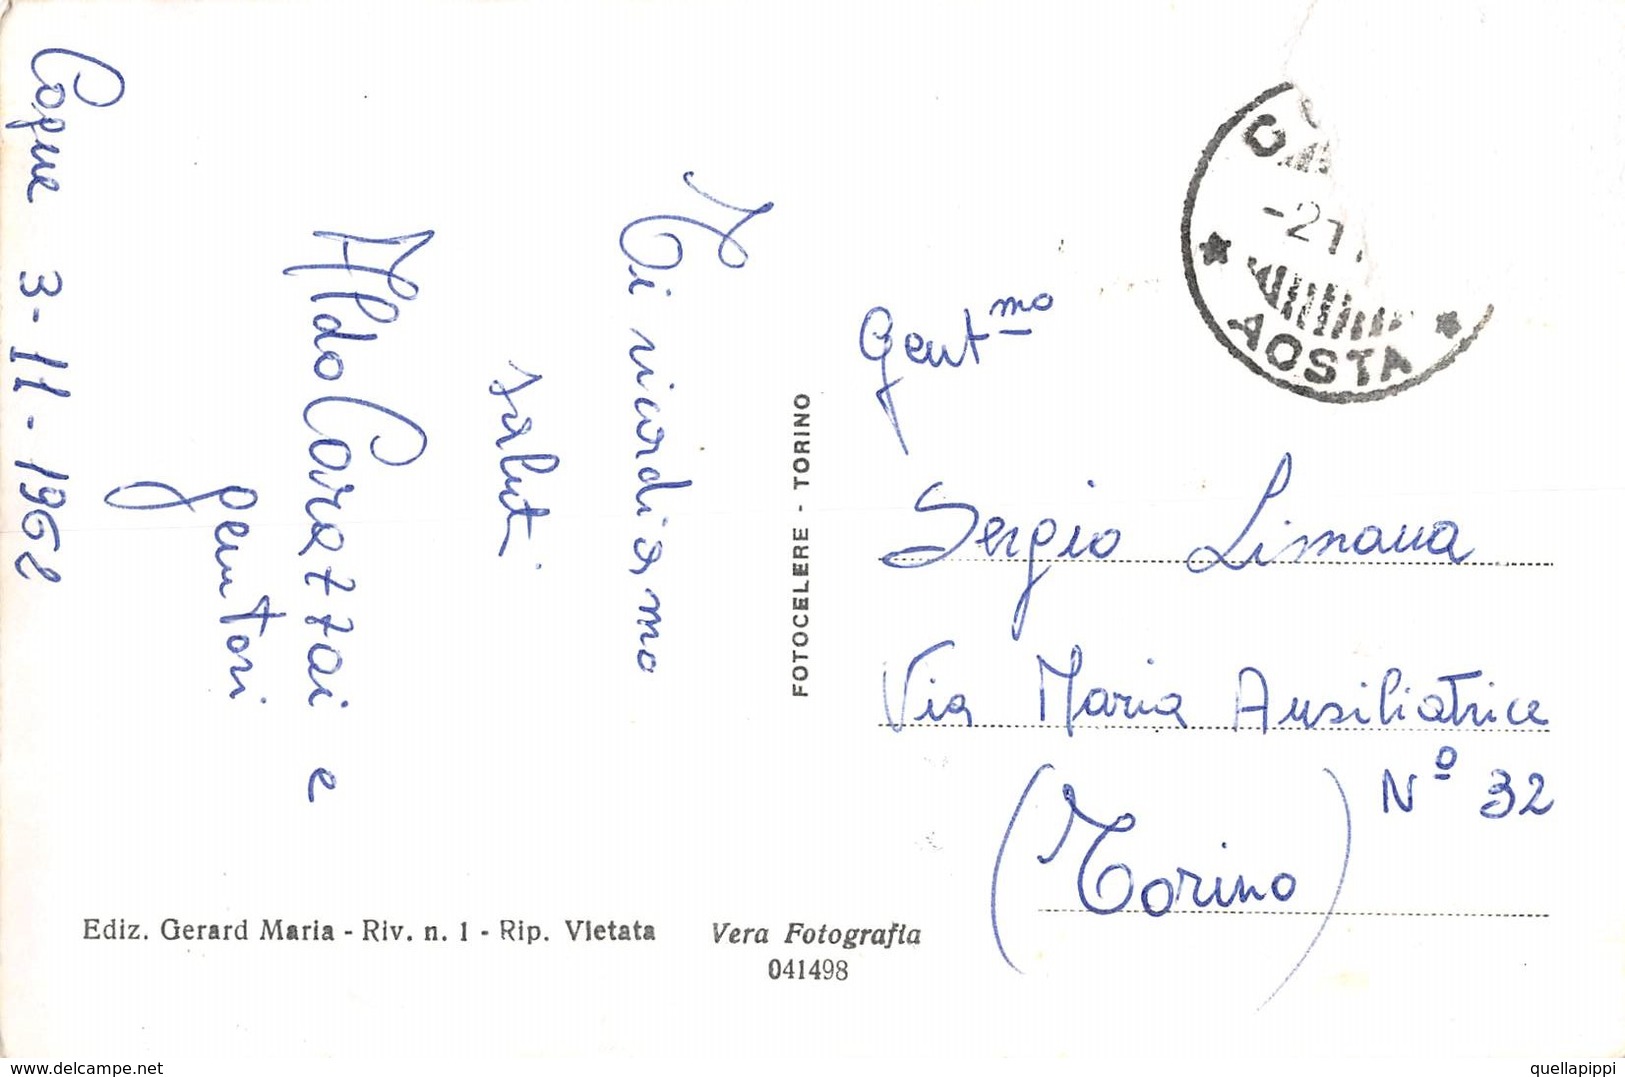 Cogne 3-11-1962
Ti ricordiamo
saluti
Aldo Carazzai e
genitori
FOTOCELERE - TORINO
AOSTA
Gent.mo
Sergio Limana
Via Maria Ausiliatrice
Nº 32
(Torino)
Ediz. Gerard Maria - Riv. n. 1 - Rip. Vietata
Vera Fotografia
041498
www.delcampe.net
quellapippi